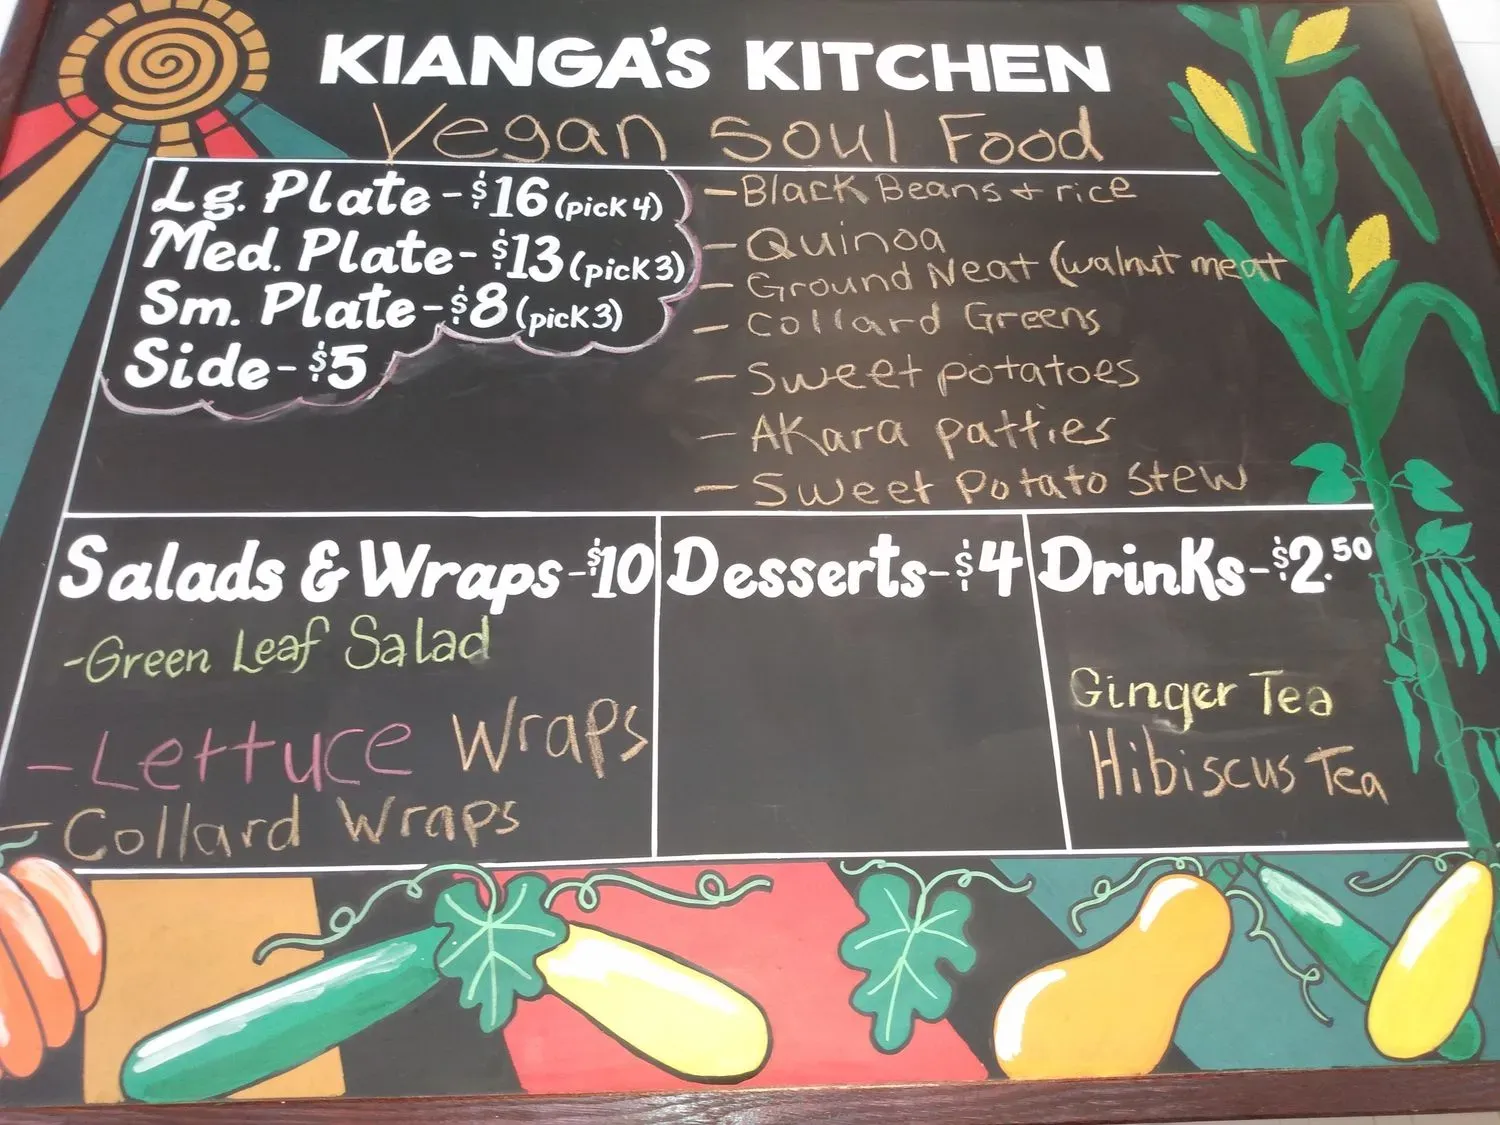 KIANGA'S KITCHEN
Vegan Soul Food
Lg. Plate - $16 (pick 4)
Med. Plate - $13 (pick 3)
Sm. Plate - $8 (pick 3)
Side - $5
- Black Beans + rice
- Quinoa
- Ground Neat (walnut meat
- Collard Greens
- Sweet potatoes
- Akara patties
- Sweet Potato Stew
Salads & Wraps - $10
- Green Leaf Salad
- Lettuce Wraps
- Collard Wraps
Desserts - $4
Drinks - $2.50
Ginger Tea
Hibiscus Tea